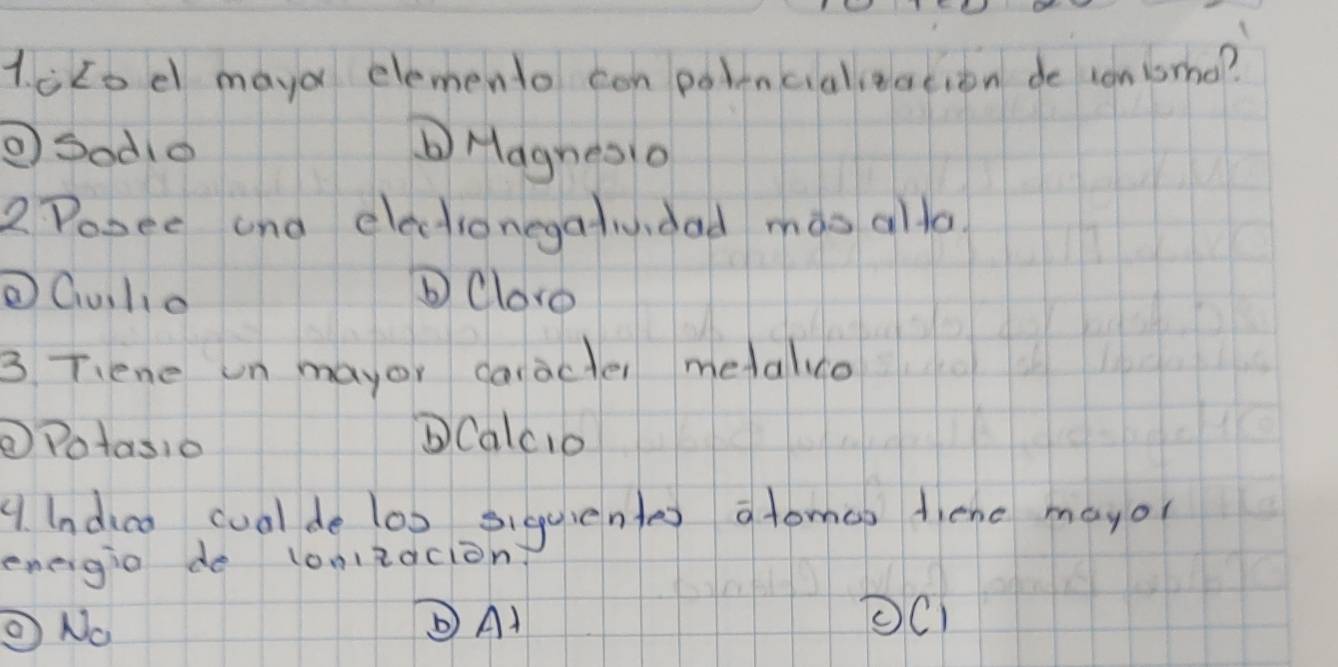 1. ¿Es el mayor elemento con potencialización de ionismo?
a) Sodio b) Magnesio
2 Posee una electronegatividad más alta.
a) b) Cloro
3 Tiene un mayor carácter metalico
a) Potasio b) Calcio
4. Indica cual de los siguientes átomos tiene mayor
energía de ionización.
a) Na b) c) Cl